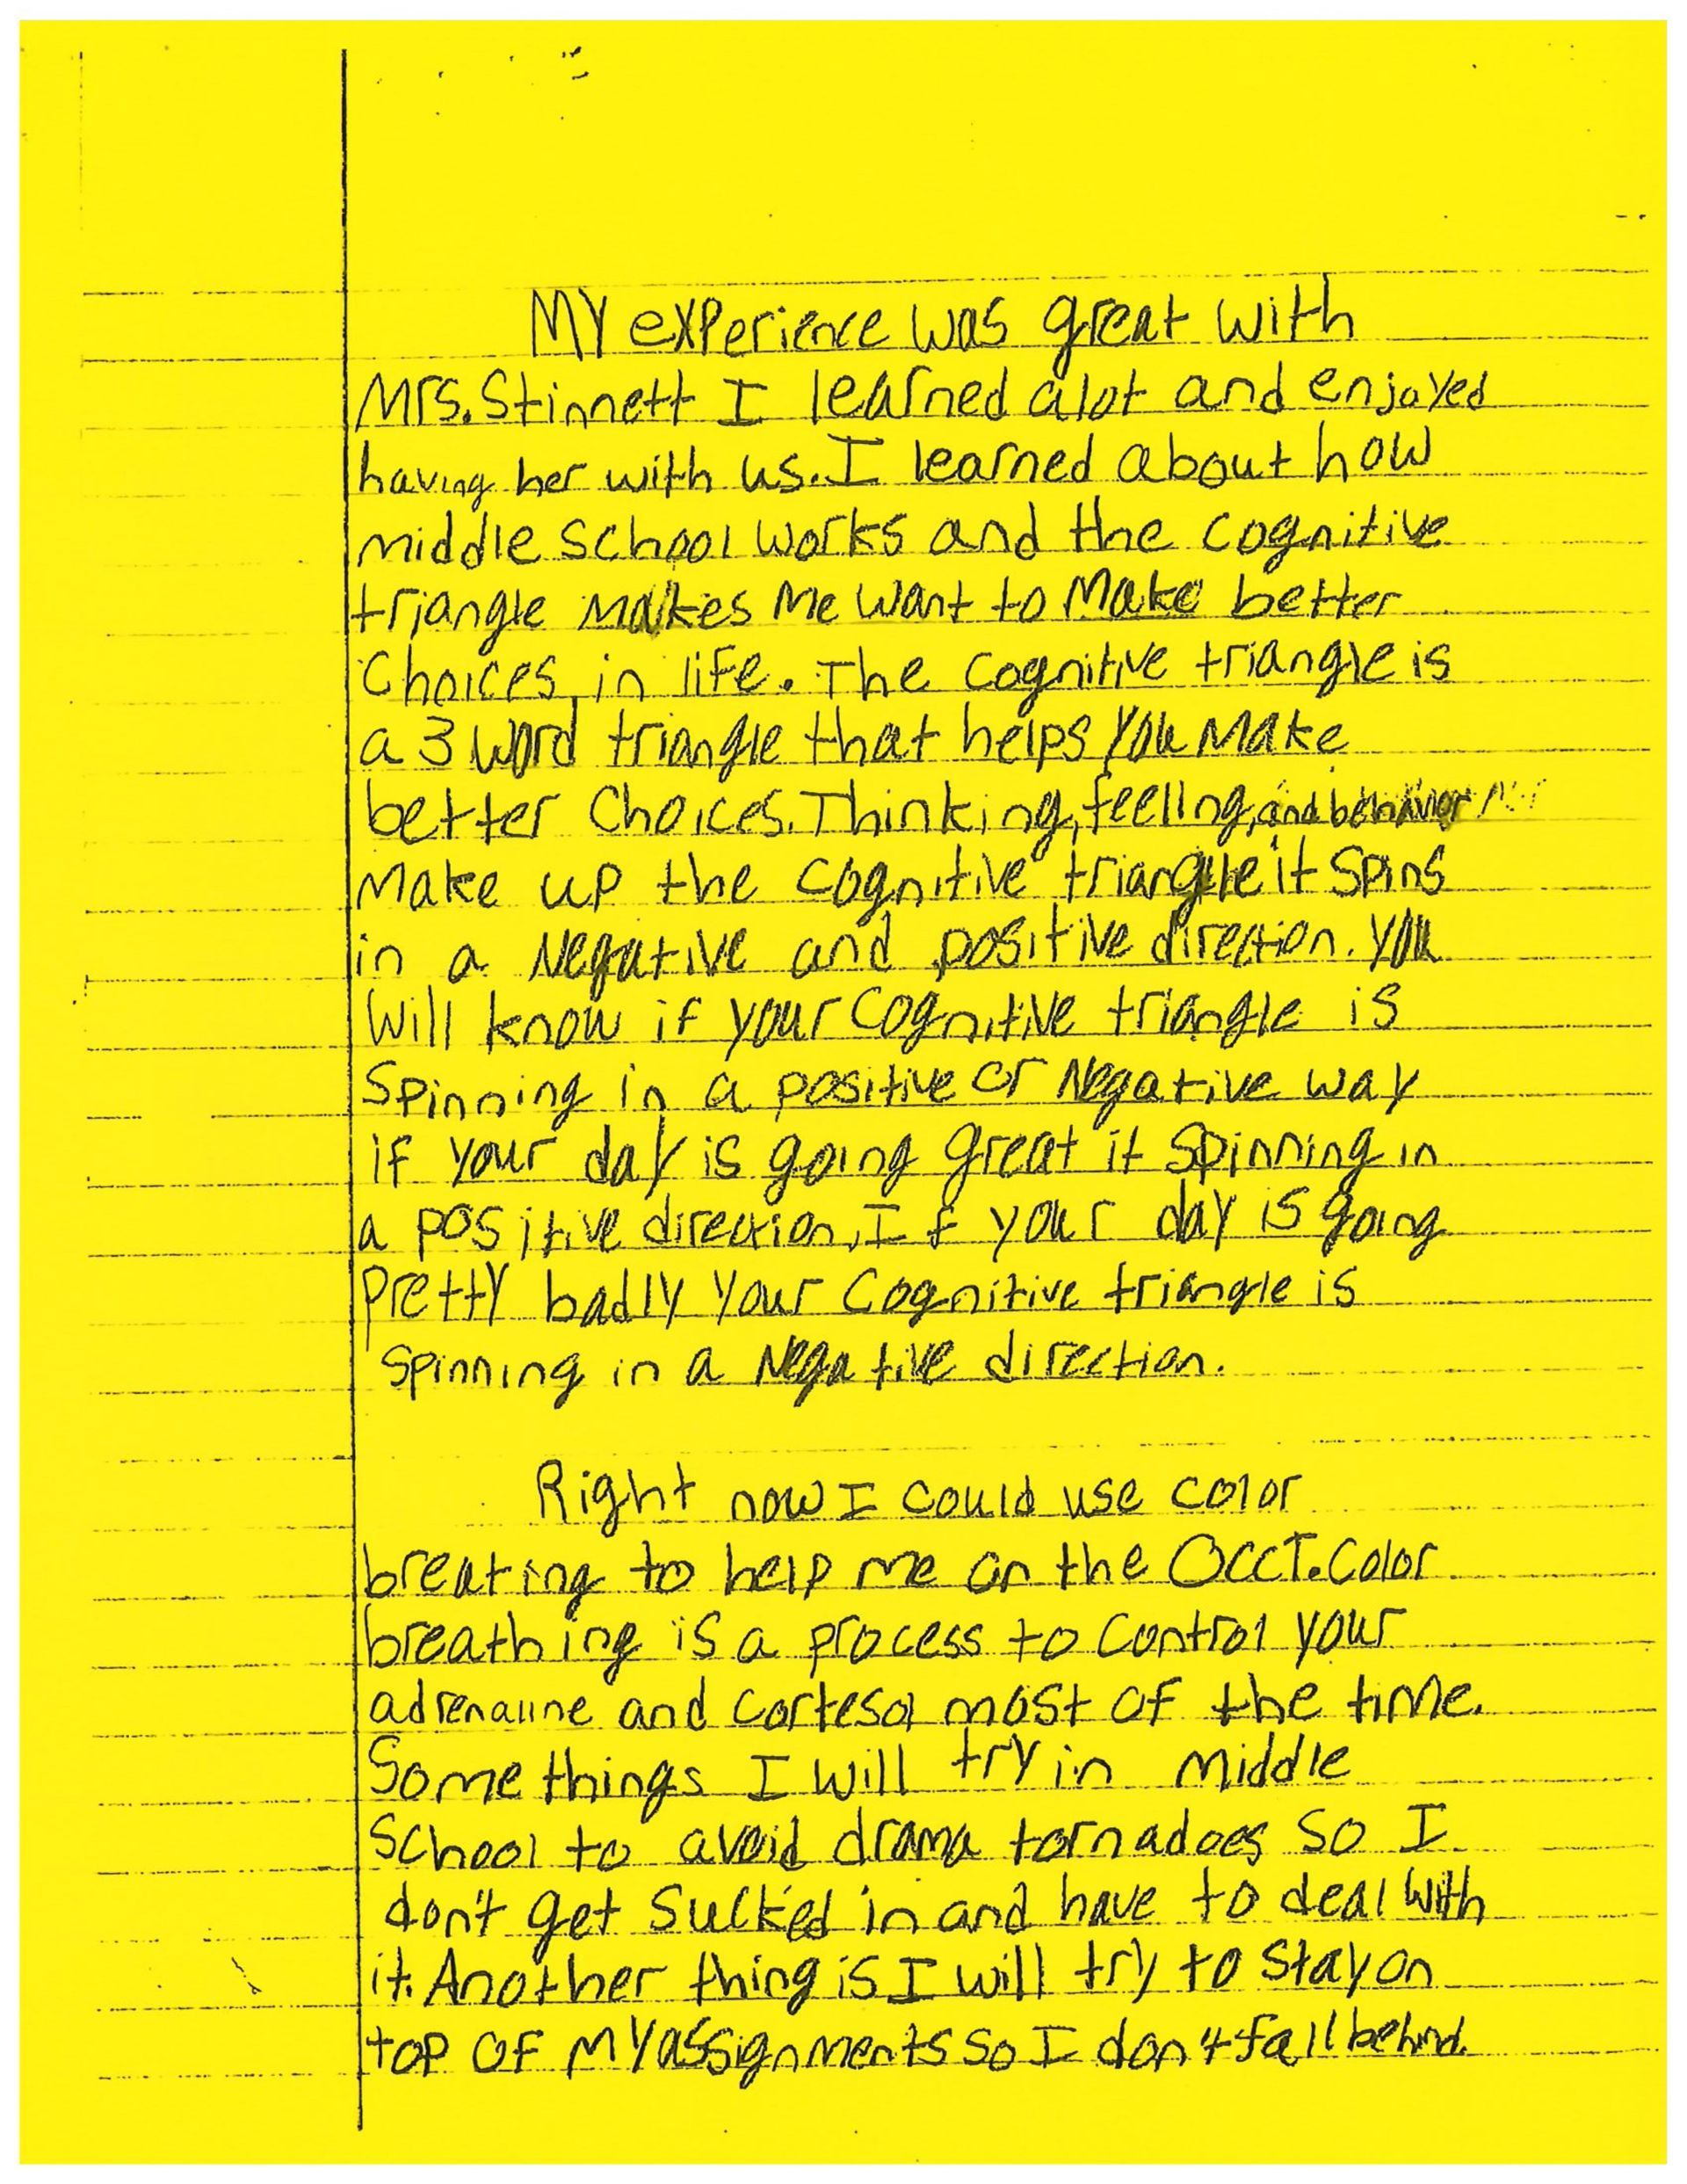 My experience was great with
Mrs. Stinnett I learned alot and enjoyed
having her with us. I learned about how
middle school works and the cognitive
triangle makes me want to make better
Choices in life. The cognitive triangle is
a 3 word triangle that helps you make
better Choices. Thinking, feeling, and behavior
Make up the cognitive triangle it spins
in a Negative and positive direction. you
will know if your cognitive triangle is
spinning in a positive or Negative way
if your day is going great it spinning in
a positive direction, If your day is going
pretty badly your Cognitive triangle is
spinning in a Negative direction.
Right now I could use color
breating to help me on the OCCT. Color
breathing is a process to control your
adrenaline and cortesol most of the time.
Some things I will try in middle
school to avoid drama tornadoes so I
don't get sucked in and have to deal with
it. Another thing is I will try to stay on
top of my assignments so I don't fall behind.